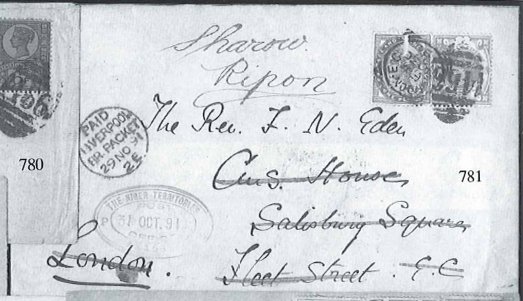 Sharow
Ripon
PAID
LIVERPOOL
BR. PACKET
29 NO 91
2E
The Rev. F. N. Eden
780
781
C.M.S. House
THE NIGER TERRITORIES
31 OCT. 91
Salisbury Square
London.
Fleet Street. E.C